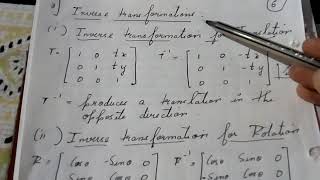 Inverse transformations:- (6)
(i) Inverse transformation for
T = [ 1 0 tx T⁻¹ = [ 1 0 -tx
0 1 ty 0 1 -ty
0 0 1 ] 0 0 1 ]
T⁻¹ = produces a translation in the
opposite direction
(ii) Inverse transformation for Rotation
R = [ Cosθ -Sinθ 0 R⁻¹ = [ Cosθ Sinθ 0